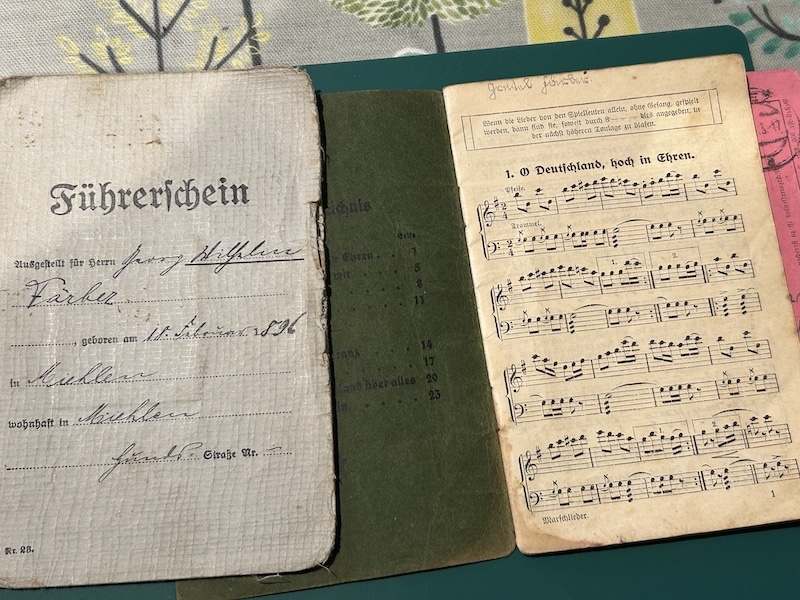 Führerschein
Ausgestellt für Herrn Georg Wilhelm
Färber
, geboren am 18. Februar 1896
in Miehlen
wohnhaft in Miehlen
Straße Nr.
Nr. 23.
Seite
Ehren . . 1
5
8
11
14
17
über alles 20
23
Gretel Färber.
Wenn die Lieder von den Spielleuten allein, ohne Gesang, gespielt
werden, dann sind sie, soweit durch 8 dies angegeben, in
der nächst höheren Tonlage zu blasen.
1. O Deutschland, hoch in Ehren.
Pfeife.
Trommel.
1.
2.
1.
2.
Marschlieder.
1